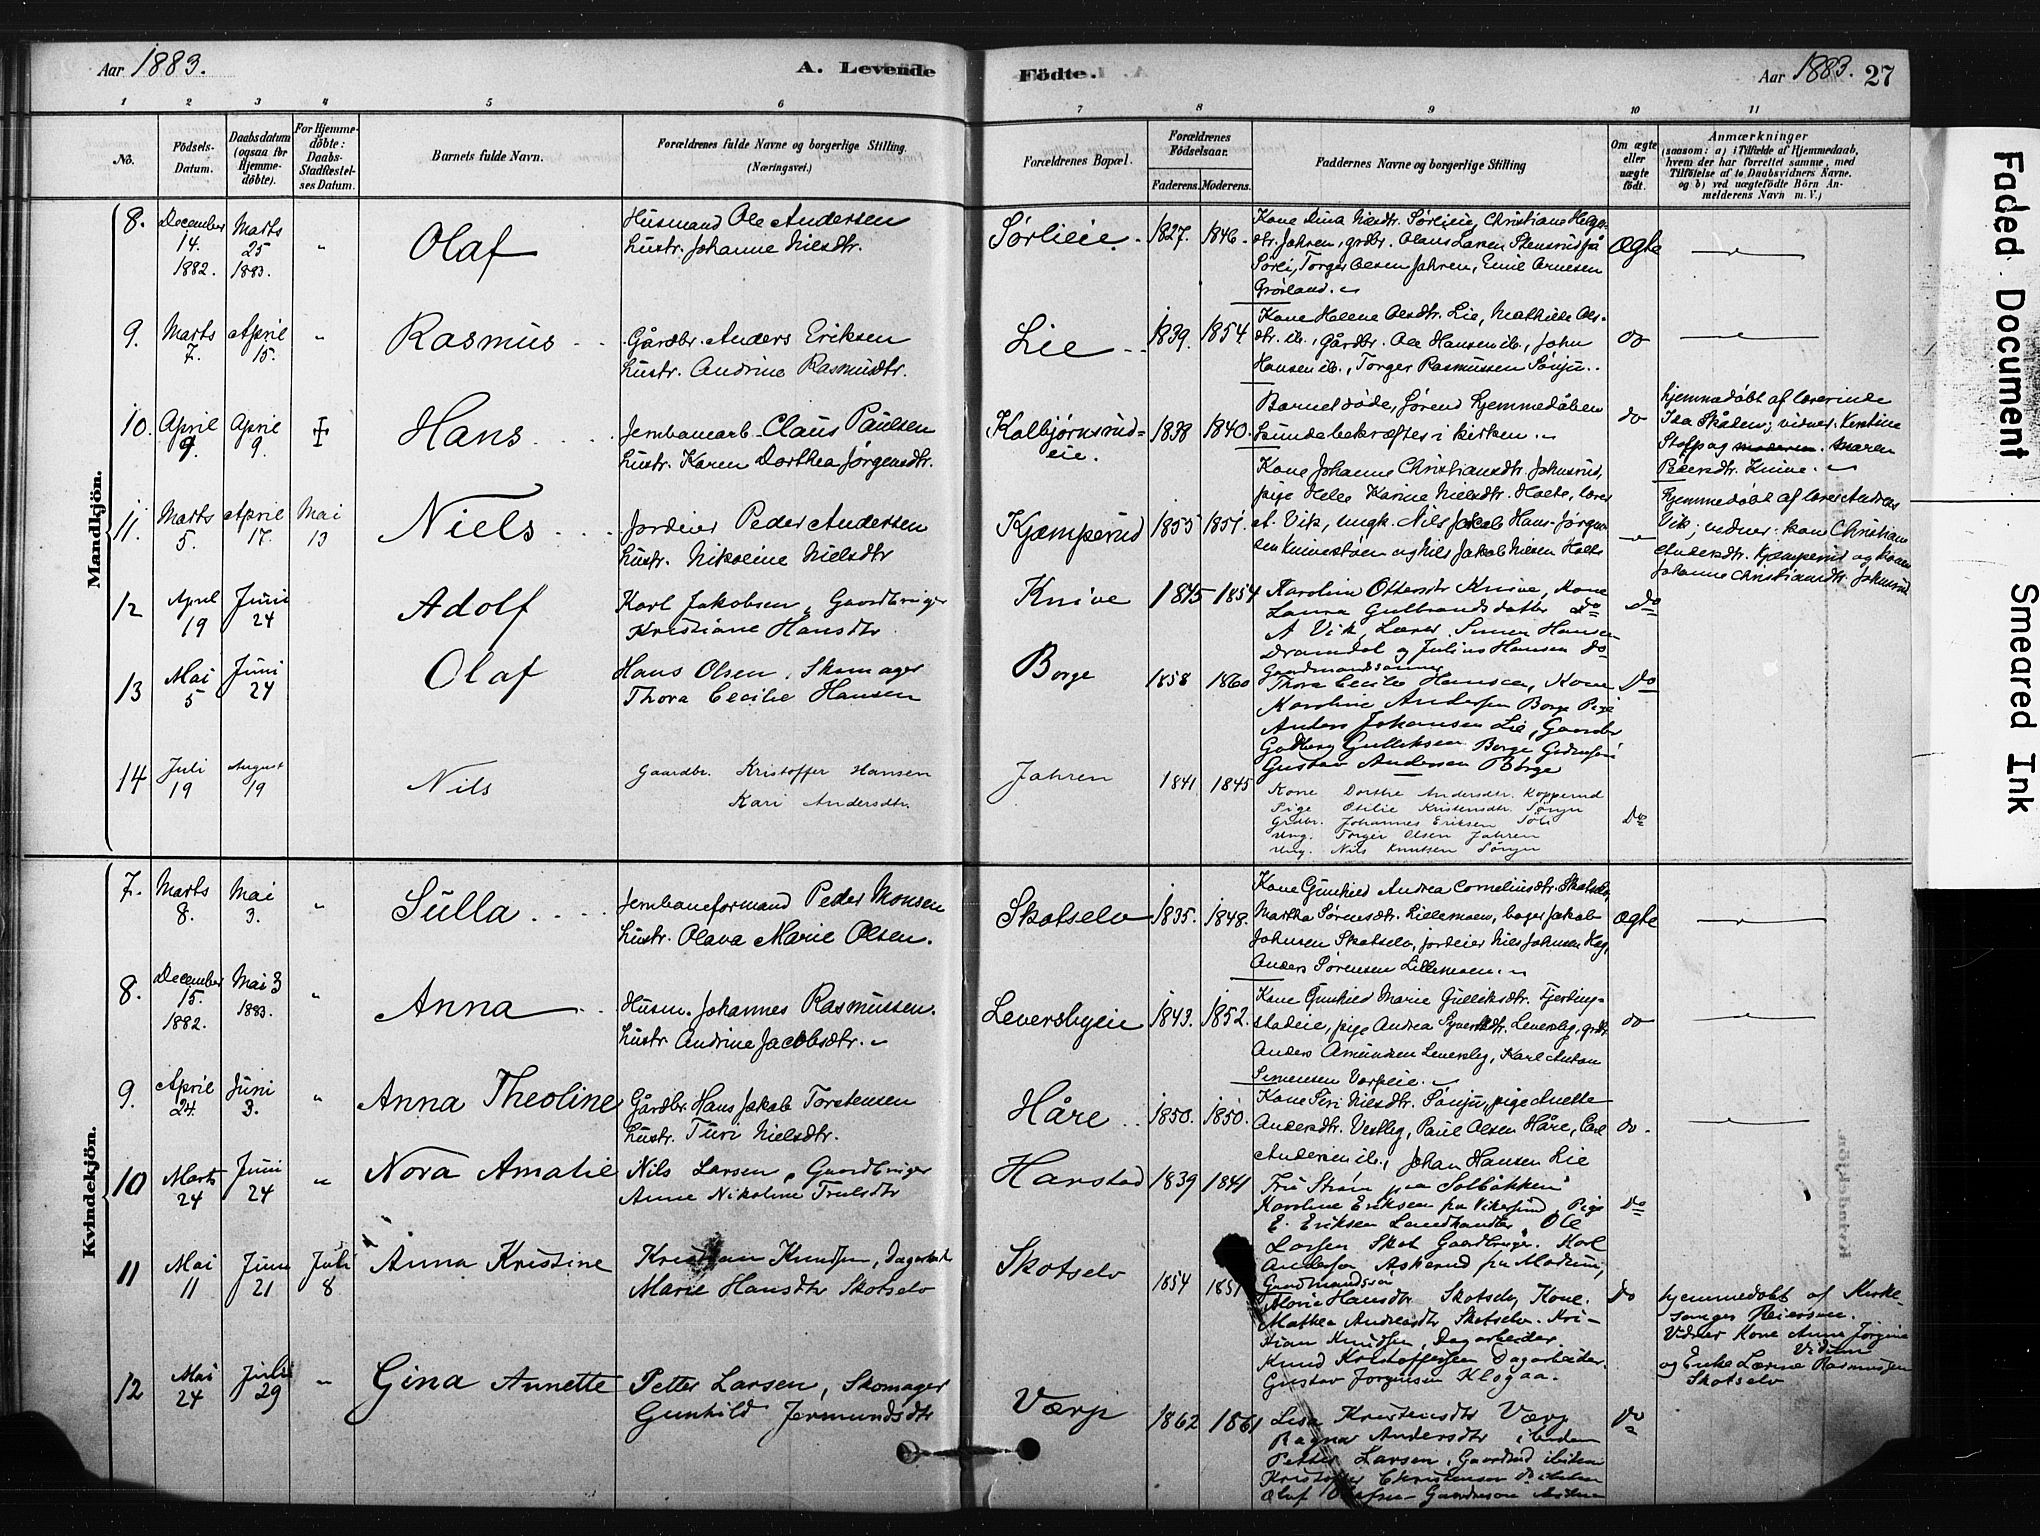 Aar 1883.
A. Levende
Födte.
Aar 1883. 27
1 2 3 4 5 6 7 8 9 10 11
No.
Födsels-Datum.
Daabsdatum (ogsaa for Hjemme-döbte).
For Hjemme-döbte: Daabs-Stadfæstel-ses Datum.
Barnets fulde Navn.
Forældrenes fulde Navne og borgerlige Stilling. (Næringsvei.)
Forældrenes Bopæl.
Forældrenes Födselsaar.
Faderens. Moderens.
Faddernes Navne og borgerlige Stilling
Om ægte eller uægte födt.
Anmærkninger
(saasom: a) i Tilfælde af Hjemmedaab, hvem der har forrettet samme, med Tilföielse af to Daabsvidners Navne. og b) ved uægtefödte Börn An-melderens Navn m. V.)
Mandkjön.
8. December 14. 1882. Marts 25 1883. " Olaf
Husmand Ole Andersen
hustr. Johanne Nielsdtr.
Sørlieie. 1827. 1846.
Kone Dina Nielsdtr. Sørlieie, Christiane Helge-
dtr. Jahren, grdbr. Olaus Larsen Stensrud på
Sørli, Torger Olsen Jahren, Emil Arnesen
Grösland.
Ægte
9. Marts 7. April 15. " Rasmus
Gårdbr. Anders Eriksen
hustr. Andrine Rasmusdtr.
Lie 1839. 1854
Kone Helene Olsdtr. Lie, Mathilde Ols-
dtr. ib., Gårdbr. Ole Hansen ib., John
Hansen ib., Torger Rasmussen Sönju.
do
10. April 9. April 9. Hans
Jernbanearb. Claus Paulsen
hustr. Karen Dorthea Jørgensdtr.
Kolbjørnsrud-
eie. 1838 1840.
Barnet döde, förend hjemmedåben
kunde bekræftes i kirken.
do
hjemmedøbt af lærerinde
Ida Skålen; vidner: Kirstine
Stopp og Maren
Pedersdtr. Knive.
11. Marts 5. April 17. Mai 13 Niels
Jordeier Peder Andersen
hustr. Nikoline Nielsdtr
Kjæmperud 1855 1851.
Kone Johanne Christiansdtr. Johnsrud,
pige Helle Karine Nielsdtr. Holte, lærer
A. Vik, ungk. Nils Jakob Hans Jørgen-
sen Knivestøen og Nils Jakob Nielsen Holte
hjemmedøbt af lærer Andreas
Vik; vidner: kone Christiane
Andersdtr. Kjæmperud og konen
Johanne Christiansdtr. Johnsrud
12 April 19 Juni 24 Adolf
Karl Jakobsen, Gaardbruger
Kristiane Hansdtr.
Knive 1845 1854
Karoline Ottersdtr Knive, Kone
Laura Gulbrandsdatter Do
A Vik, Lærer, Simen Hansen
Dramdal og Julius Hansen Do
Gaardmandssønner
Do
13 Mai 5 Juni 24 Olaf
Hans Olsen, Skomager
Thora Cecilie Hansen
Borge 1858 1860
Thora Cecilie Hansen, Kone
Karoline Andersen Borge Pige
Anders Johansen Lie, Gaardbr
Godberg Gulliksen Borge
Gustav Andersen Borge
Do
14 Juli 19 August 19 Nils
Gaardbr. Kristoffer Hansen
Kari Andersdtr.
Jahren 1841 1845
Kone Dorthe Andersdtr. Kopperud
Pige Otilie Kristensdtr. Sönju
Grdbr. Johannes Eriksen
Ung. Torger Olsen Jahren
Ung. Nils Knutsen Sönju
Do
Kvindekjön.
7. Marts 8. Mai 3. " Sulla
Jernbaneformand Peder Monsen
hustr. Olava Marie Olsen.
Skotselv 1835. 1848.
Kone Gunhild Andrea Corneliusdtr. Skotselv,
Martha Sørensdtr. Lillemoen, bager Jakob
Johnsen Skotselv, jordeier Nils Johnsen Hag,
Anders Sørensen Lillemoen.
Ægte
8. December 15. 1882. Mai 3 1883. " Anna
Husm. Johannes Rasmussen.
hustr Andrine Jacobsdtr.
Leversbyeie 1843. 1852.
Kone Gunhild Marie Gulliksdtr. Fjerding-
stadeie, pige Andrea Syversdtr. Leversby, grdbr
Anders Amundsen Leversby, Karl Anton
Simensen Varpeie.
do
9. April 24. Juni 3. " Anna Theoline
Gårdbr. Hans Jakob Torstensen
hustr. Turi Nielsdtr.
Håre 1850. 1850.
Kone Siri Nielsdtr. Sönju, pige Anette
Andersdtr. Vestby, Paul Olsen Håre, Carl
Andersen ib., Johan Hansen Lie
do.
10 Marts 24 Juni 24 " Nora Amalie
Nils Larsen, Gaardbruger
Anne Nikoline Trulsdtr
Harstad 1839 1841
Fru Strøm paa Solbakken
Karoline Eriksen fra Vikersund, Pige
E. Eriksen Landhandler, Ole
Larsen Skot Gaardbruger. Karl
Andersen Askerud fra Modum,
Gaardmandssøn
Do
11 Mai 11 Juni 21 Juli 8 Anna Kristine
Kristian Knudsen, Dagarbeid
Marie Hansdtr Skotselv
Skotselv 1854 1851
Marie Hansdtr Skotselv, Kone.
Mathea Andreasdtr Skotselv. Kri-
stian Knudsen, Dagarbeider
Knud Kristoffersen Dagarbeider
Gustav Jorgensen Klogaa.
Do
hjemmedøbt af Kirke-
sanger Reiersen.
Vidner Kone Anne Jørgine
og Enke Lærne Rasmussen
Skotselv
12 Mai 24 Juli 29 " Gina Annette
Petter Larsen, Skomager
Gunhild Jermundsdtr
Værp 1862 1861
Lisa Kristensdtr Værp
Ragna Andersdtr ibidem
Petter Larsen, ibidem
Kristoffer Christensen do ibidem
Do
Faded Document
Smeared Ink